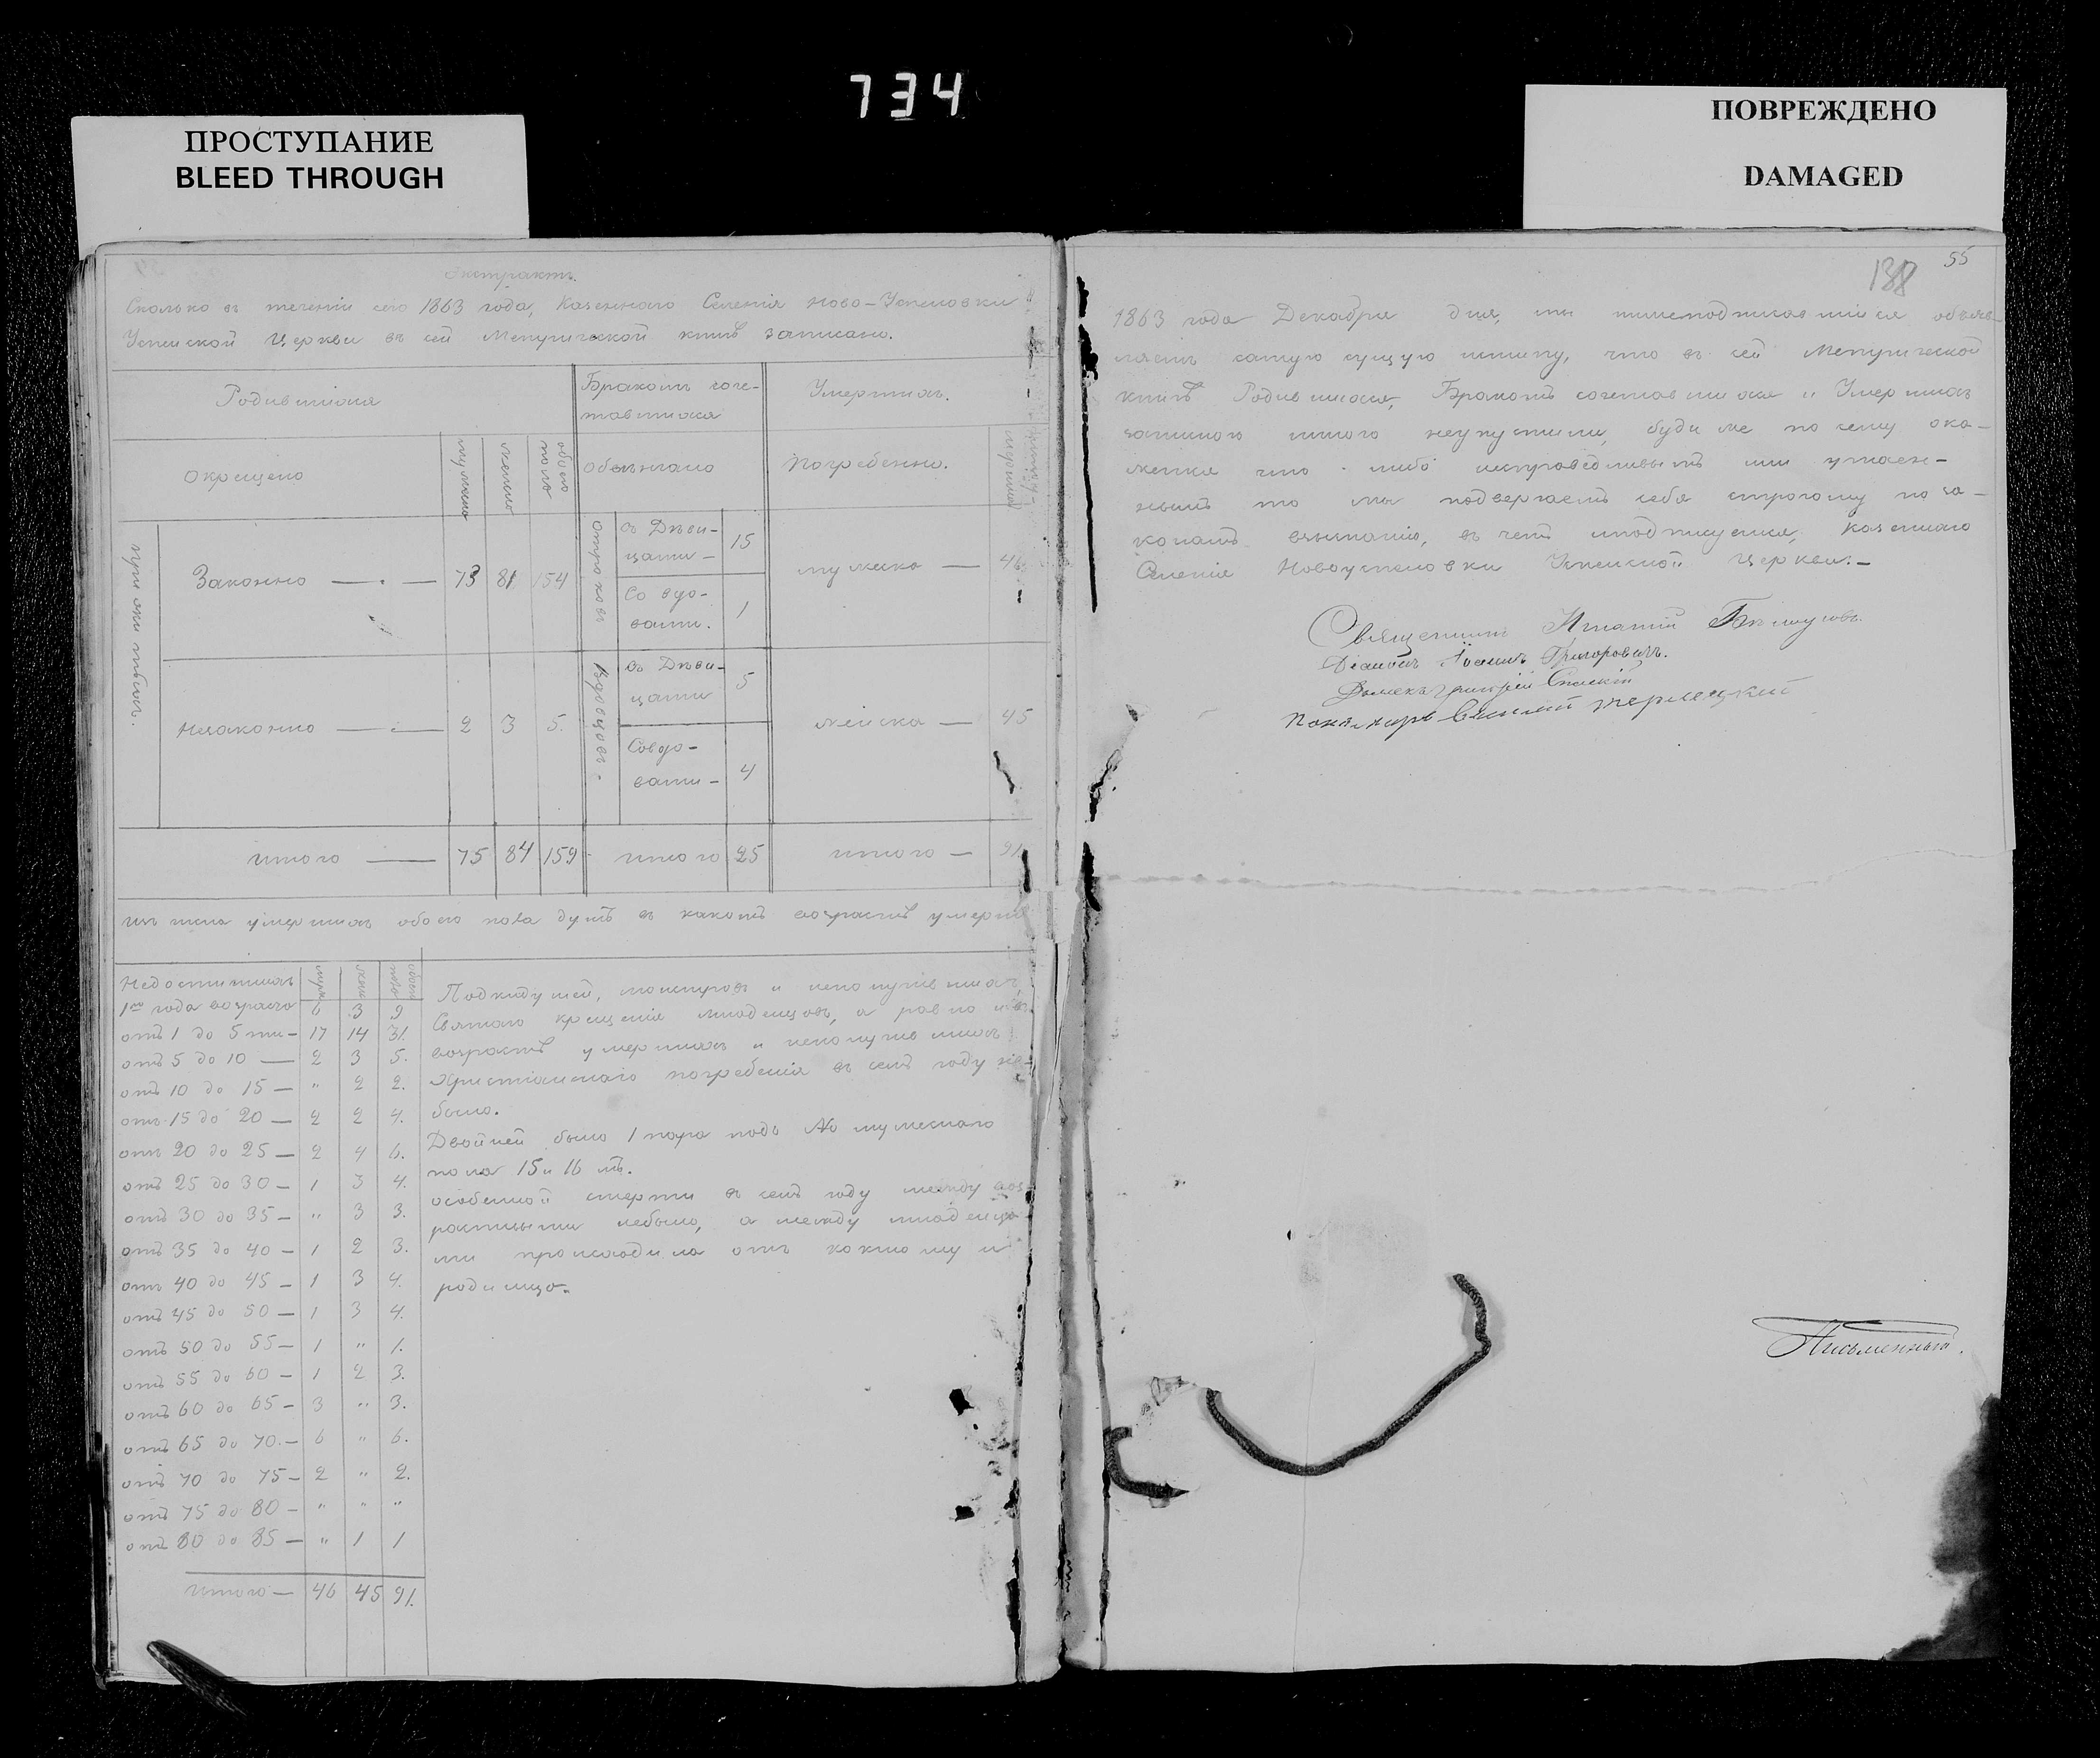 734
ПРОСТУПАНИЕ
BLEED THROUGH
ПОВРЕЖДЕНО
DAMAGED
Экстрактъ.
Сколько въ теченіи сего 1863 года, Казеннаго Селенія Ново-Успеновки
Успенской Церкви въ сей Метрической книгѣ записано.
Родившихся
Бракомъ соче-
тавшихся
Умершихъ.
Окрещено
мужеска
женска
обоего пола
Обвенчано
Погребенно.
Законно — 73 81 154
Отроковъ
съ Дѣви-
цами — 15
Со вдо-
вами. 1
мужеска — 46
Незаконно — 2 3 5.
Вдовцовъ
съ Дѣви-
цами 5
Со вдо-
вами — 4
женска — 45
итого — 75 84 159
итого 25
итого — 91
изъ числа умершихъ обоего пола душъ въ какомъ возрастѣ умерло
Недостигшихъ
1го года возраста 6 3 9
отъ 1 до 5 ти — 17 14 31.
отъ 5 до 10 — 2 3 5.
отъ 10 до 15 — " 2 2.
отъ 15 до 20 — 2 2 4.
отъ 20 до 25 — 2 4 6.
отъ 25 до 30 — 1 3 4.
отъ 30 до 35 — " 3 3.
отъ 35 до 40 — 1 2 3.
отъ 40 до 45 — 1 3 4.
отъ 45 до 50 — 1 3 4.
отъ 50 до 55 — 1 " 1.
отъ 55 до 60 — 1 2 3.
отъ 60 до 65 — 3 " 3.
отъ 65 до 70. — 6 " 6.
отъ 70 до 75 — 2 " 2.
отъ 75 до 80 — " " "
отъ 80 до 85 — " 1 1
итого — 46 45 91.
Подкидушей, и неполучившихъ
Святаго крещенія младенцовъ, а равно
возрастѣ умершихъ и неполучившихъ
Христіанскаго погребенія въ семъ году не
было.
Двойней было 1 пара подъ № мужескаго
пола 15 и 16 мъ.
особенной смерти въ семъ году между воз
растными небыло, а между младенца
ми происходила отъ кашлю и
родимца.
138
55
1863 года Декабря дня, мы нижеподписавшіися объяв
ляемъ самую сущую истину, что въ сей Метрической
книгѣ Родившихся, Бракомъ сочетавшихся и Умершихъ
запискою никого неупустили, буди же по сему ока-
жется что-либо несправедливымъ или утаен-
нымъ то мы подвергаемъ себя строгому по за-
конамъ взысканію, въ чемъ и подписуемся, Казеннаго
Селенія Новоуспеновки Успенской Церкви: —
Священникъ Игнатій
Діаконъ Іоаннъ Григоровичъ.
Дьячекъ Григорій Спаскій
Понамарь
Письменный